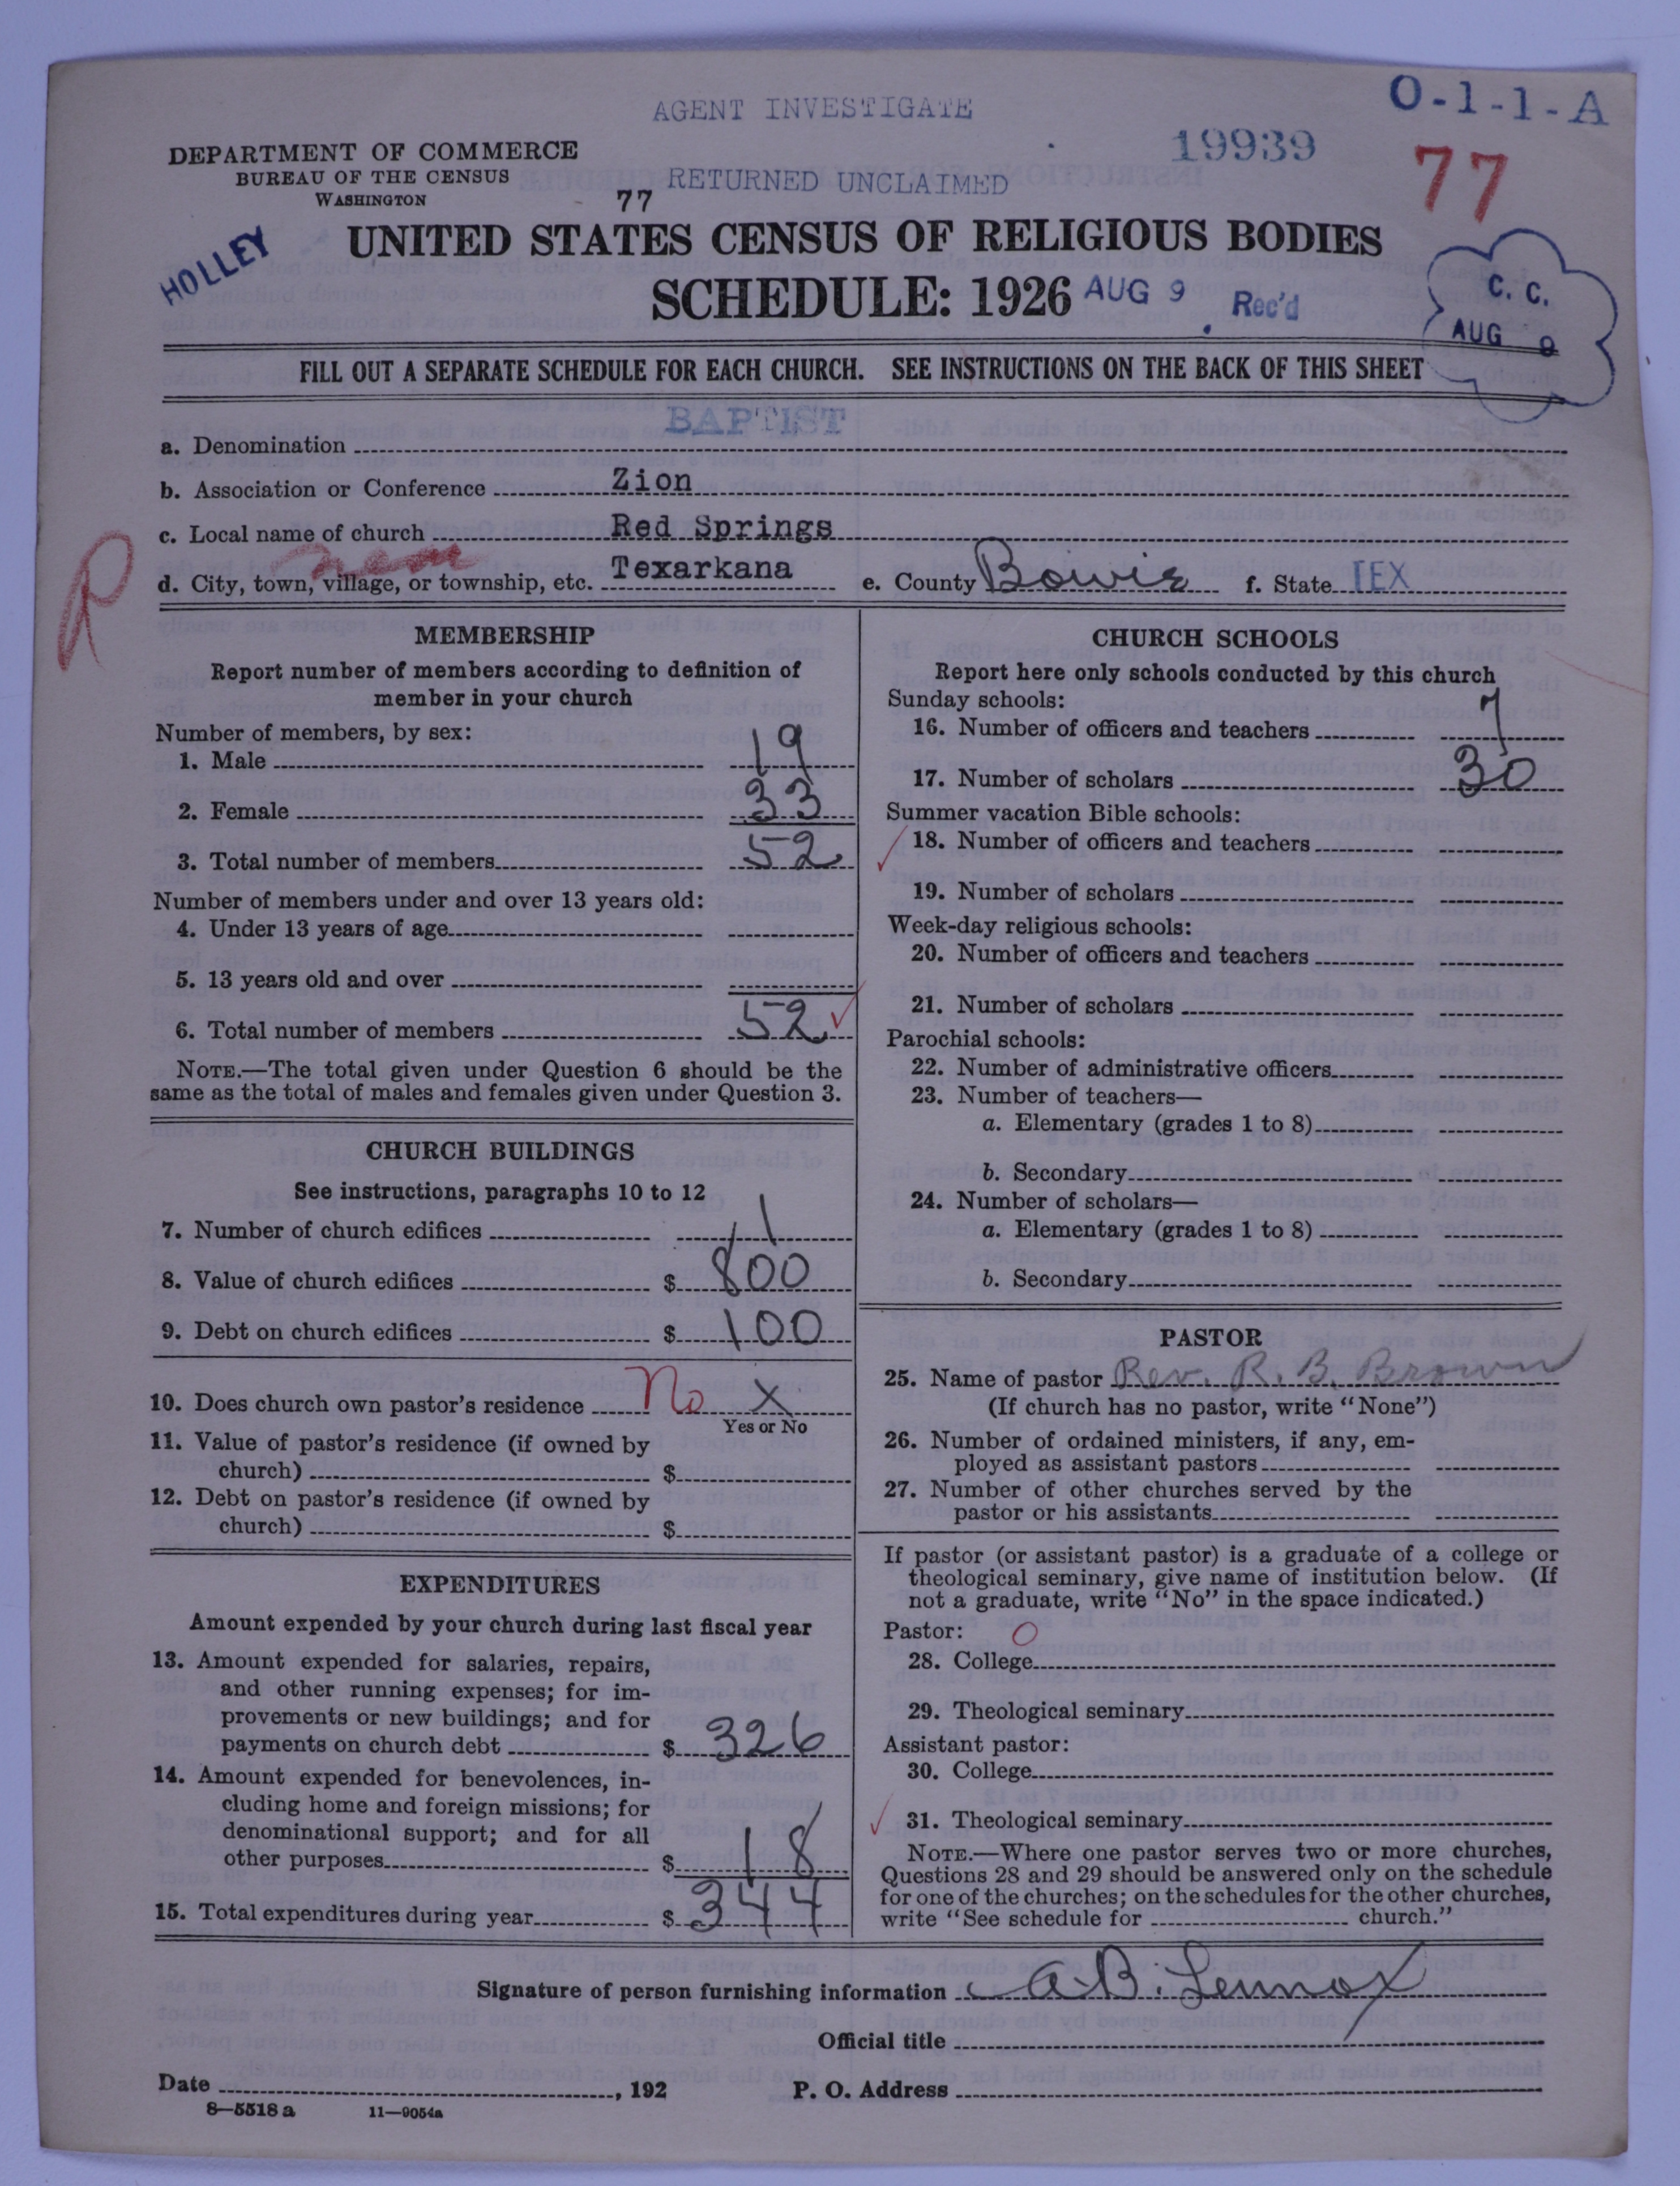 AGENT INVESTIGATE
O-1-1-A
19939
77
DEPARTMENT OF COMMERCE
BUREAU OF THE CENSUS
WASHINGTON
77 RETURNED UNCLAIMED
HOLLEY
UNITED STATES CENSUS OF RELIGIOUS BODIES
SCHEDULE: 1926 AUG 9 Rec'd
C. C.
AUG 9
FILL OUT A SEPARATE SCHEDULE FOR EACH CHURCH. SEE INSTRUCTIONS ON THE BACK OF THIS SHEET
a. Denomination BAPTIST
b. Association or Conference Zion
c. Local name of church Red Springs
R
d. City, town, village, or township, etc. Texarkana e. County Bowie f. State TEX
MEMBERSHIP
Report number of members according to definition of
member in your church
Number of members, by sex:
1. Male 19
2. Female 33
3. Total number of members 52
Number of members under and over 13 years old:
4. Under 13 years of age
5. 13 years old and over
6. Total number of members 52
NOTE.—The total given under Question 6 should be the
same as the total of males and females given under Question 3.
CHURCH BUILDINGS
See instructions, paragraphs 10 to 12
7. Number of church edifices 1
8. Value of church edifices $ 800
9. Debt on church edifices $ 100
10. Does church own pastor's residence No X
Yes or No
11. Value of pastor's residence (if owned by
church) $
12. Debt on pastor's residence (if owned by
church) $
EXPENDITURES
Amount expended by your church during last fiscal year
13. Amount expended for salaries, repairs,
and other running expenses; for im-
provements or new buildings; and for
payments on church debt $ 326
14. Amount expended for benevolences, in-
cluding home and foreign missions; for
denominational support; and for all
other purposes $ 18
15. Total expenditures during year $ 344
CHURCH SCHOOLS
Report here only schools conducted by this church
Sunday schools:
16. Number of officers and teachers 7
17. Number of scholars 30
Summer vacation Bible schools:
18. Number of officers and teachers
19. Number of scholars
Week-day religious schools:
20. Number of officers and teachers
21. Number of scholars
Parochial schools:
22. Number of administrative officers
23. Number of teachers—
a. Elementary (grades 1 to 8)
b. Secondary
24. Number of scholars—
a. Elementary (grades 1 to 8)
b. Secondary
PASTOR
25. Name of pastor Rev. R. B. Brown
(If church has no pastor, write "None")
26. Number of ordained ministers, if any, em-
ployed as assistant pastors
27. Number of other churches served by the
pastor or his assistants
If pastor (or assistant pastor) is a graduate of a college or
theological seminary, give name of institution below. (If
not a graduate, write "No" in the space indicated.)
Pastor: O
28. College
29. Theological seminary
Assistant pastor:
30. College
31. Theological seminary
NOTE.—Where one pastor serves two or more churches,
Questions 28 and 29 should be answered only on the schedule
for one of the churches; on the schedules for the other churches,
write "See schedule for church."
Signature of person furnishing information A.B. Lennox
Official title
Date , 192 P. O. Address
8—5518 a 11—9054a